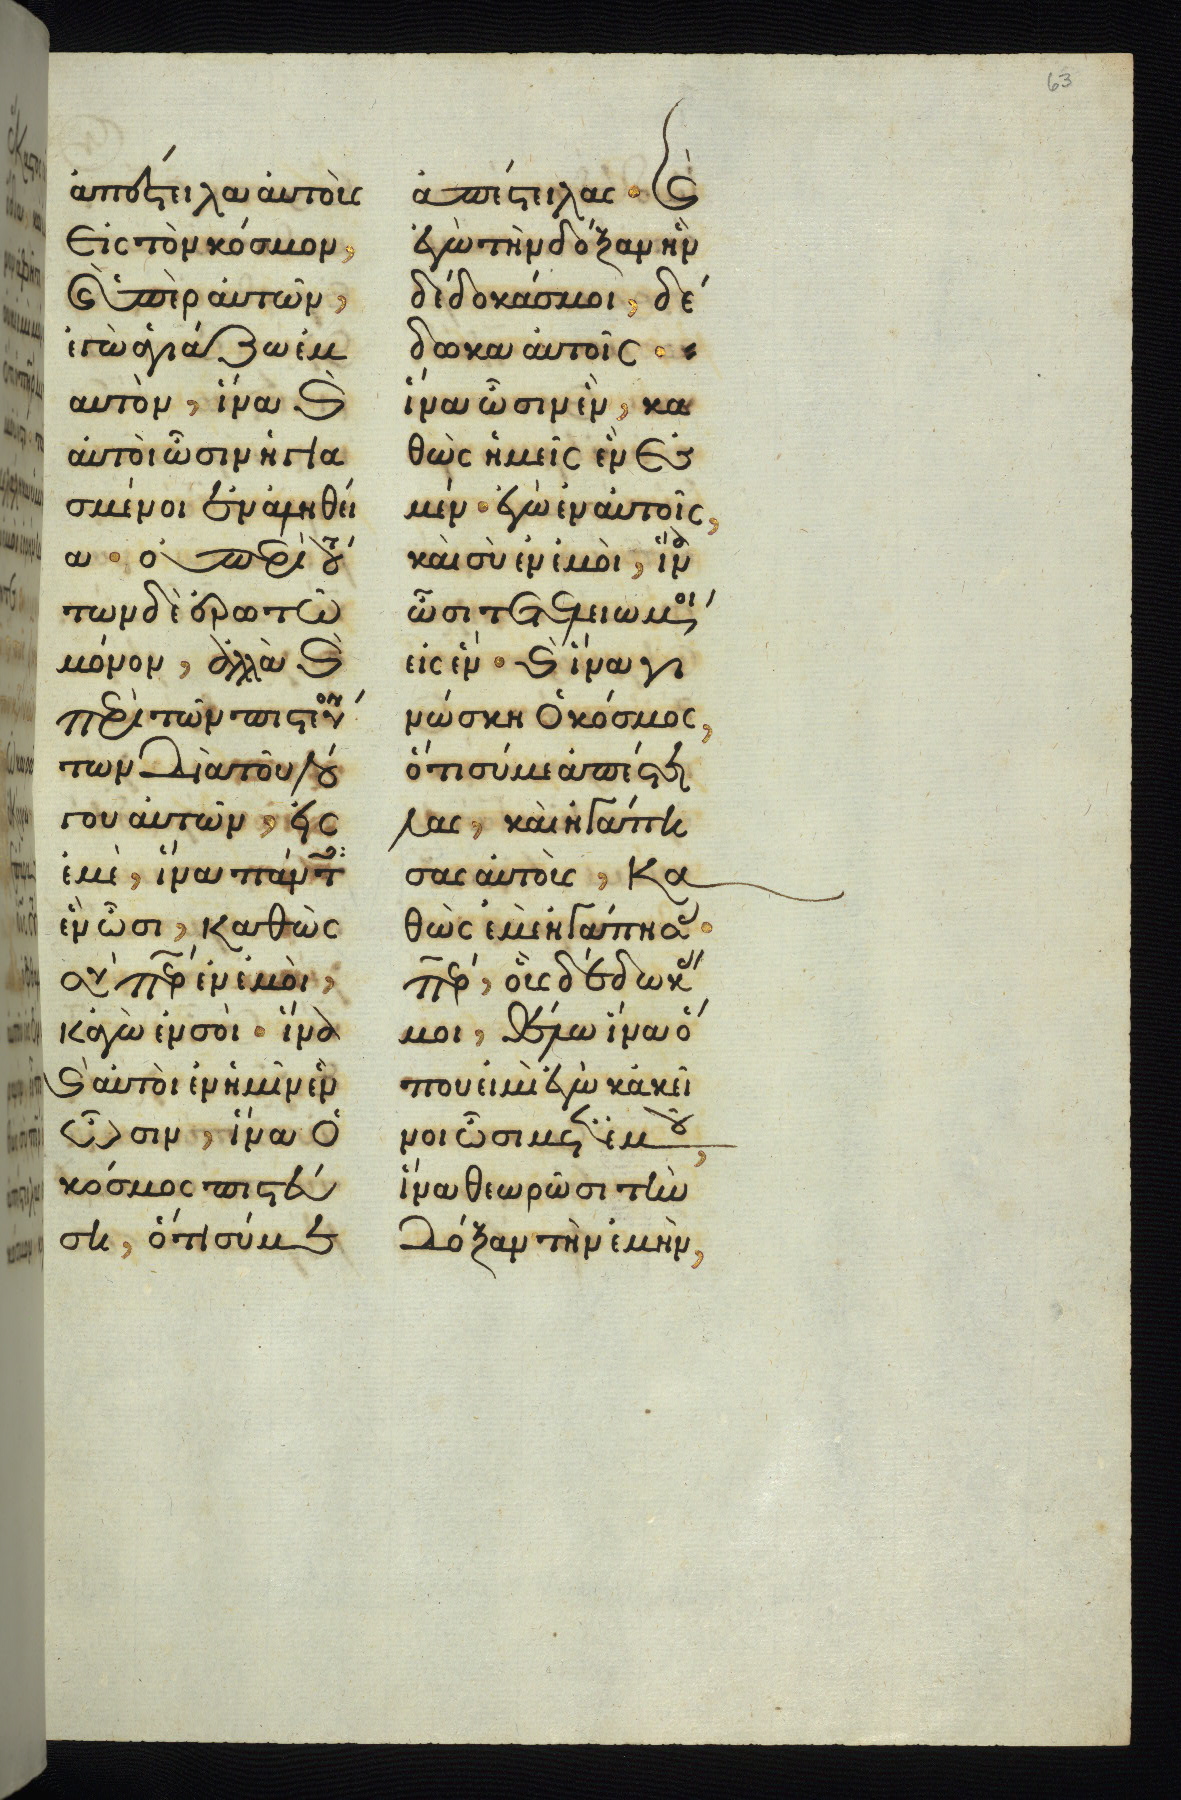 63
ἀπόστειλα αὐτοὺς
εἰς τὸν κόσμον,
καὶ ὑπὲρ αὐτῶν,
ἐγὼ ἁγιάζω ἐμ
αυτὸν, ἵνα καὶ
αὐτοὶ ὦσιν ἡγια
σμένοι ἐν ἀληθεί
α. οὐ περὶ τού
των δὲ ἐρωτῶ
μόνον, ἀλλὰ καὶ
περὶ τῶν πιστευόν
των διὰ τοῦ λό
γου αὐτῶν, εἰς
ἐμὲ, ἵνα πάντες
ἓν ὦσι, καθὼς
σύ περ ἐν ἐμοὶ,
κἀγὼ ἐν σοὶ. ἵνα
καὶ αὐτοὶ ἐν ἡμῖν ἓν
ὦσιν, ἵνα ὁ
κόσμος πιστεύ
ση, ὅτι σύ με
ἀπέστειλας. καὶ
ἐγὼ τὴν δόξαν ἣν
δέδοκάς μοι, δέ
δωκα αὐτοῖς.
ἵνα ὦσιν ἓν, κα
θὼς ἡμεῖς ἓν ἐσ
μέν. ἐγὼ ἐν αὐτοῖς,
καὶ σὺ ἐν ἐμοὶ, ἵνα
ὦσι τετελειωμένοι
εἰς ἕν. καὶ ἵνα γι
νώσκη ὁ κόσμος,
ὅτι σύ με ἀπέστει
λας, καὶ ἠγάπη
σας αὐτοὺς, κα
θὼς ἐμὲ ἠγάπησας.
περ, οὓς δέδωκάς
μοι, θέλω ἵνα ὅ
που εἰμὶ ἐγὼ κἀκεῖ
νοι ὦσι μετ' ἐμοῦ,
ἵνα θεωρῶσι τὴν
δόξαν τὴν ἐμὴν,